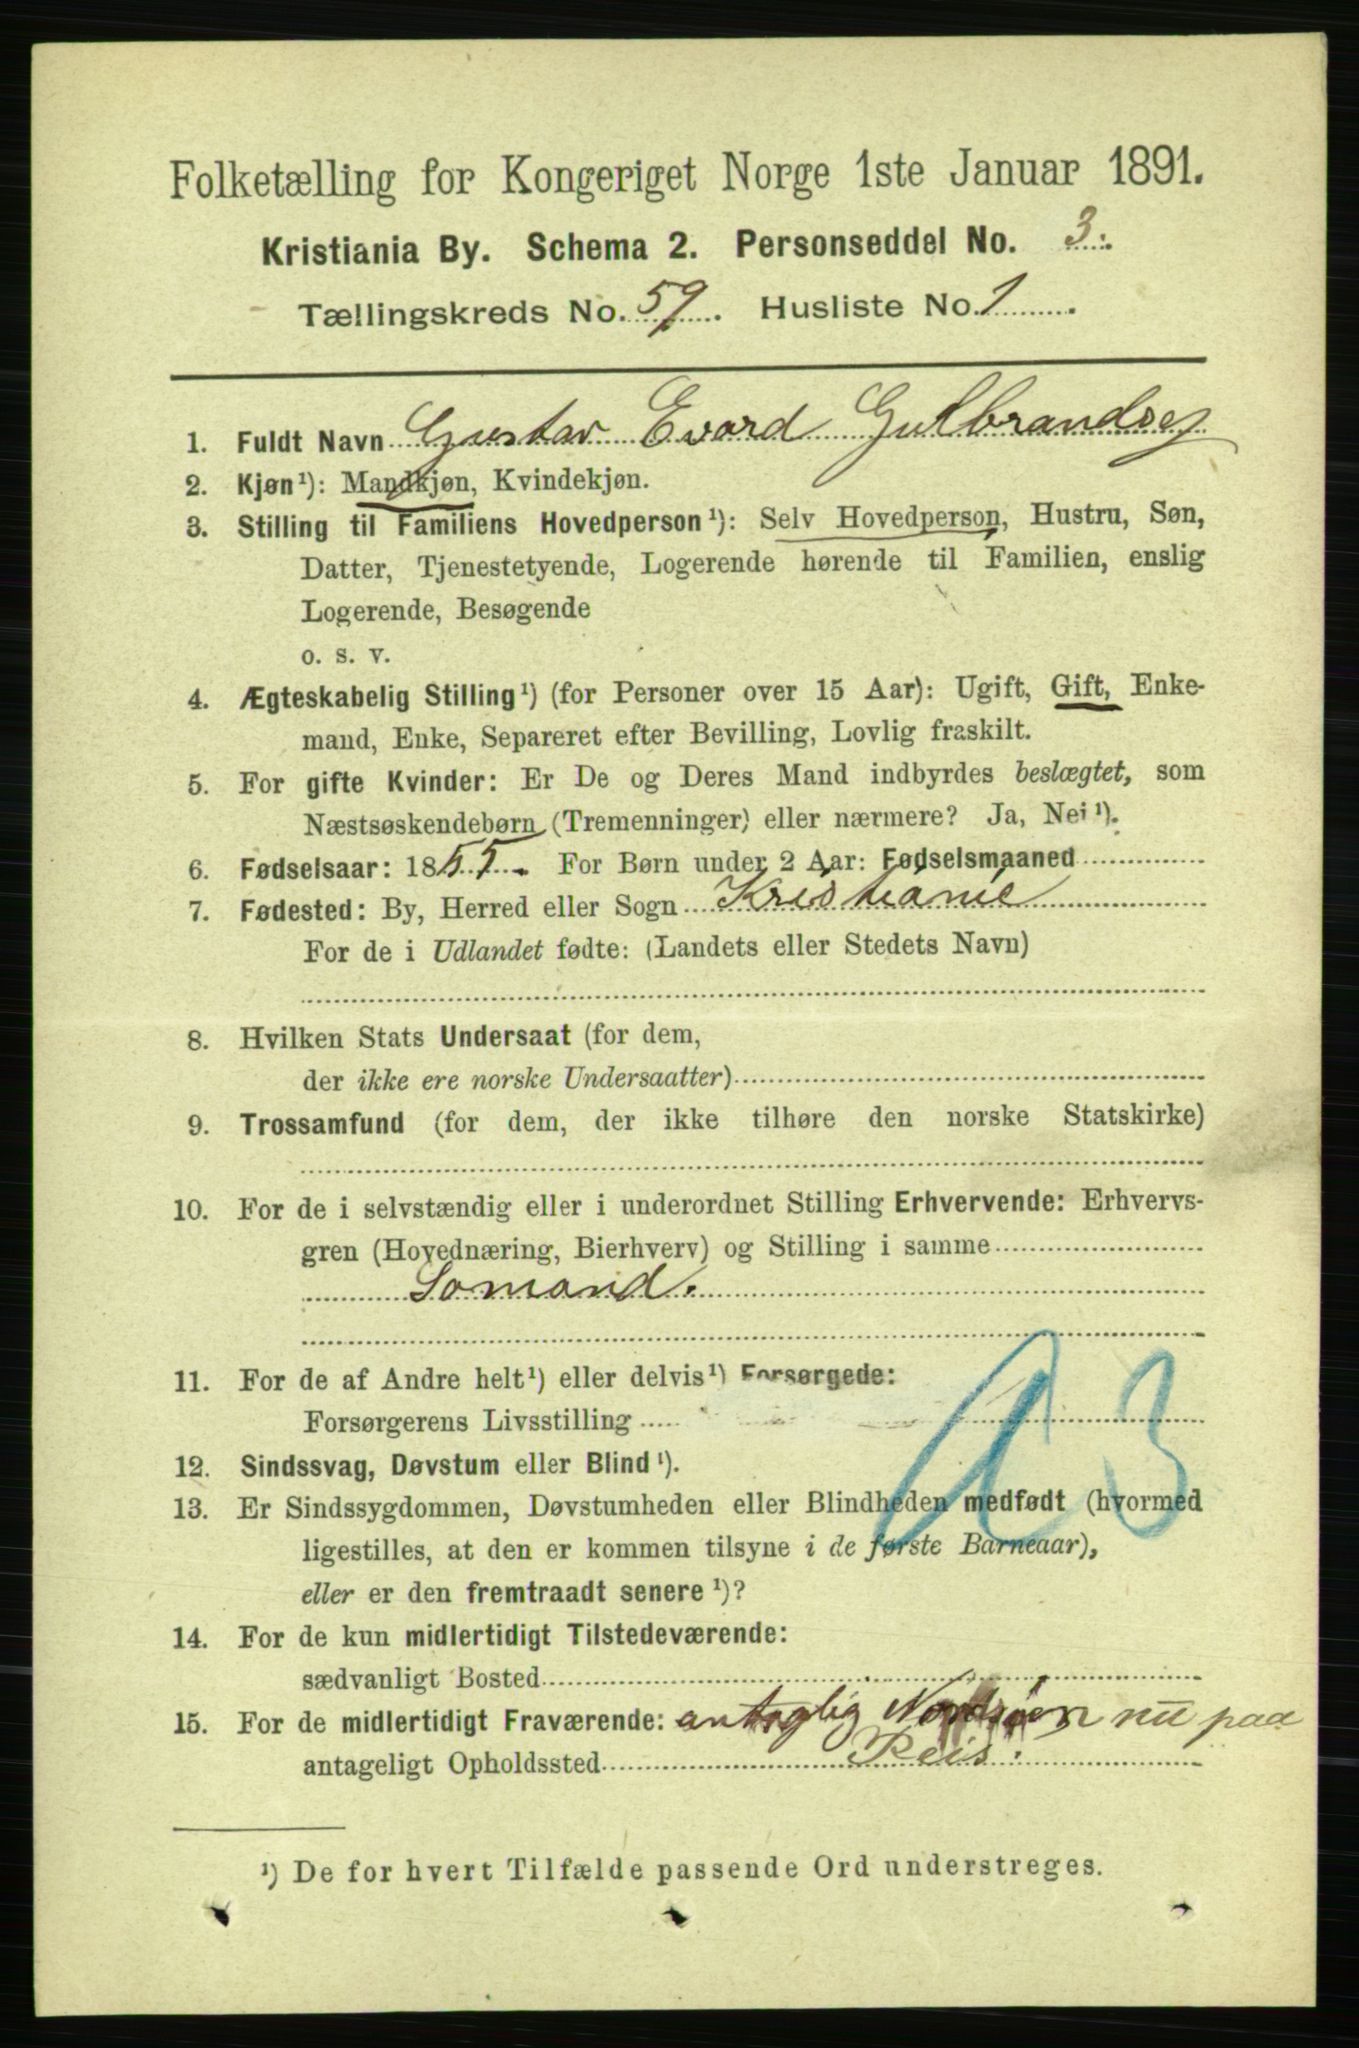 Folketælling for Kongeriget Norge 1ste Januar 1891.
Kristiania By. Schema 2. Personseddel No. 3.
Tællingskreds No. 59. Husliste No. 1.
1. Fuldt Navn Gustav Evard Gulbrandsen
2. Kjøn ¹): Mandkjøn, Kvindekjøn.
3. Stilling til Familiens Hovedperson ¹): Selv Hovedperson, Hustru, Søn,
Datter, Tjenestetyende, Logerende hørende til Familien, enslig
Logerende, Besøgende
o. s. v.
4. Ægteskabelig Stilling ¹) (for Personer over 15 Aar): Ugift, Gift, Enke-
mand, Enke, Separeret efter Bevilling, Lovlig fraskilt.
5. For gifte Kvinder: Er De og Deres Mand indbyrdes beslægtet, som
Næstsøskendebørn (Tremenninger) eller nærmere? Ja, Nei ¹).
6. Fødselsaar: 1855. For Børn under 2 Aar: Fødselsmaaned
7. Fødested: By, Herred eller Sogn Kristianie
For de i Udlandet fødte: (Landets eller Stedets Navn)
8. Hvilken Stats Undersaat (for dem,
der ikke ere norske Undersaatter)
9. Trossamfund (for dem, der ikke tilhøre den norske Statskirke)
10. For de i selvstændig eller i underordnet Stilling Erhvervende: Erhvervs-
gren (Hovednæring, Bierhverv) og Stilling i samme
Somand.
11. For de af Andre helt ¹) eller delvis ¹) Forsørgede:
Forsørgerens Livsstilling
12. Sindssvag, Døvstum eller Blind ¹).
13. Er Sindssygdommen, Døvstumheden eller Blindheden medfødt (hvormed
ligestilles, at den er kommen tilsyne i de første Barneaar),
eller er den fremtraadt senere ¹)?
14. For de kun midlertidigt Tilstedeværende:
sædvanligt Bosted
15. For de midlertidigt Fraværende: antaglig Nordsiøen nu paa
antageligt Opholdssted Reis.
¹) De for hvert Tilfælde passende Ord understreges.